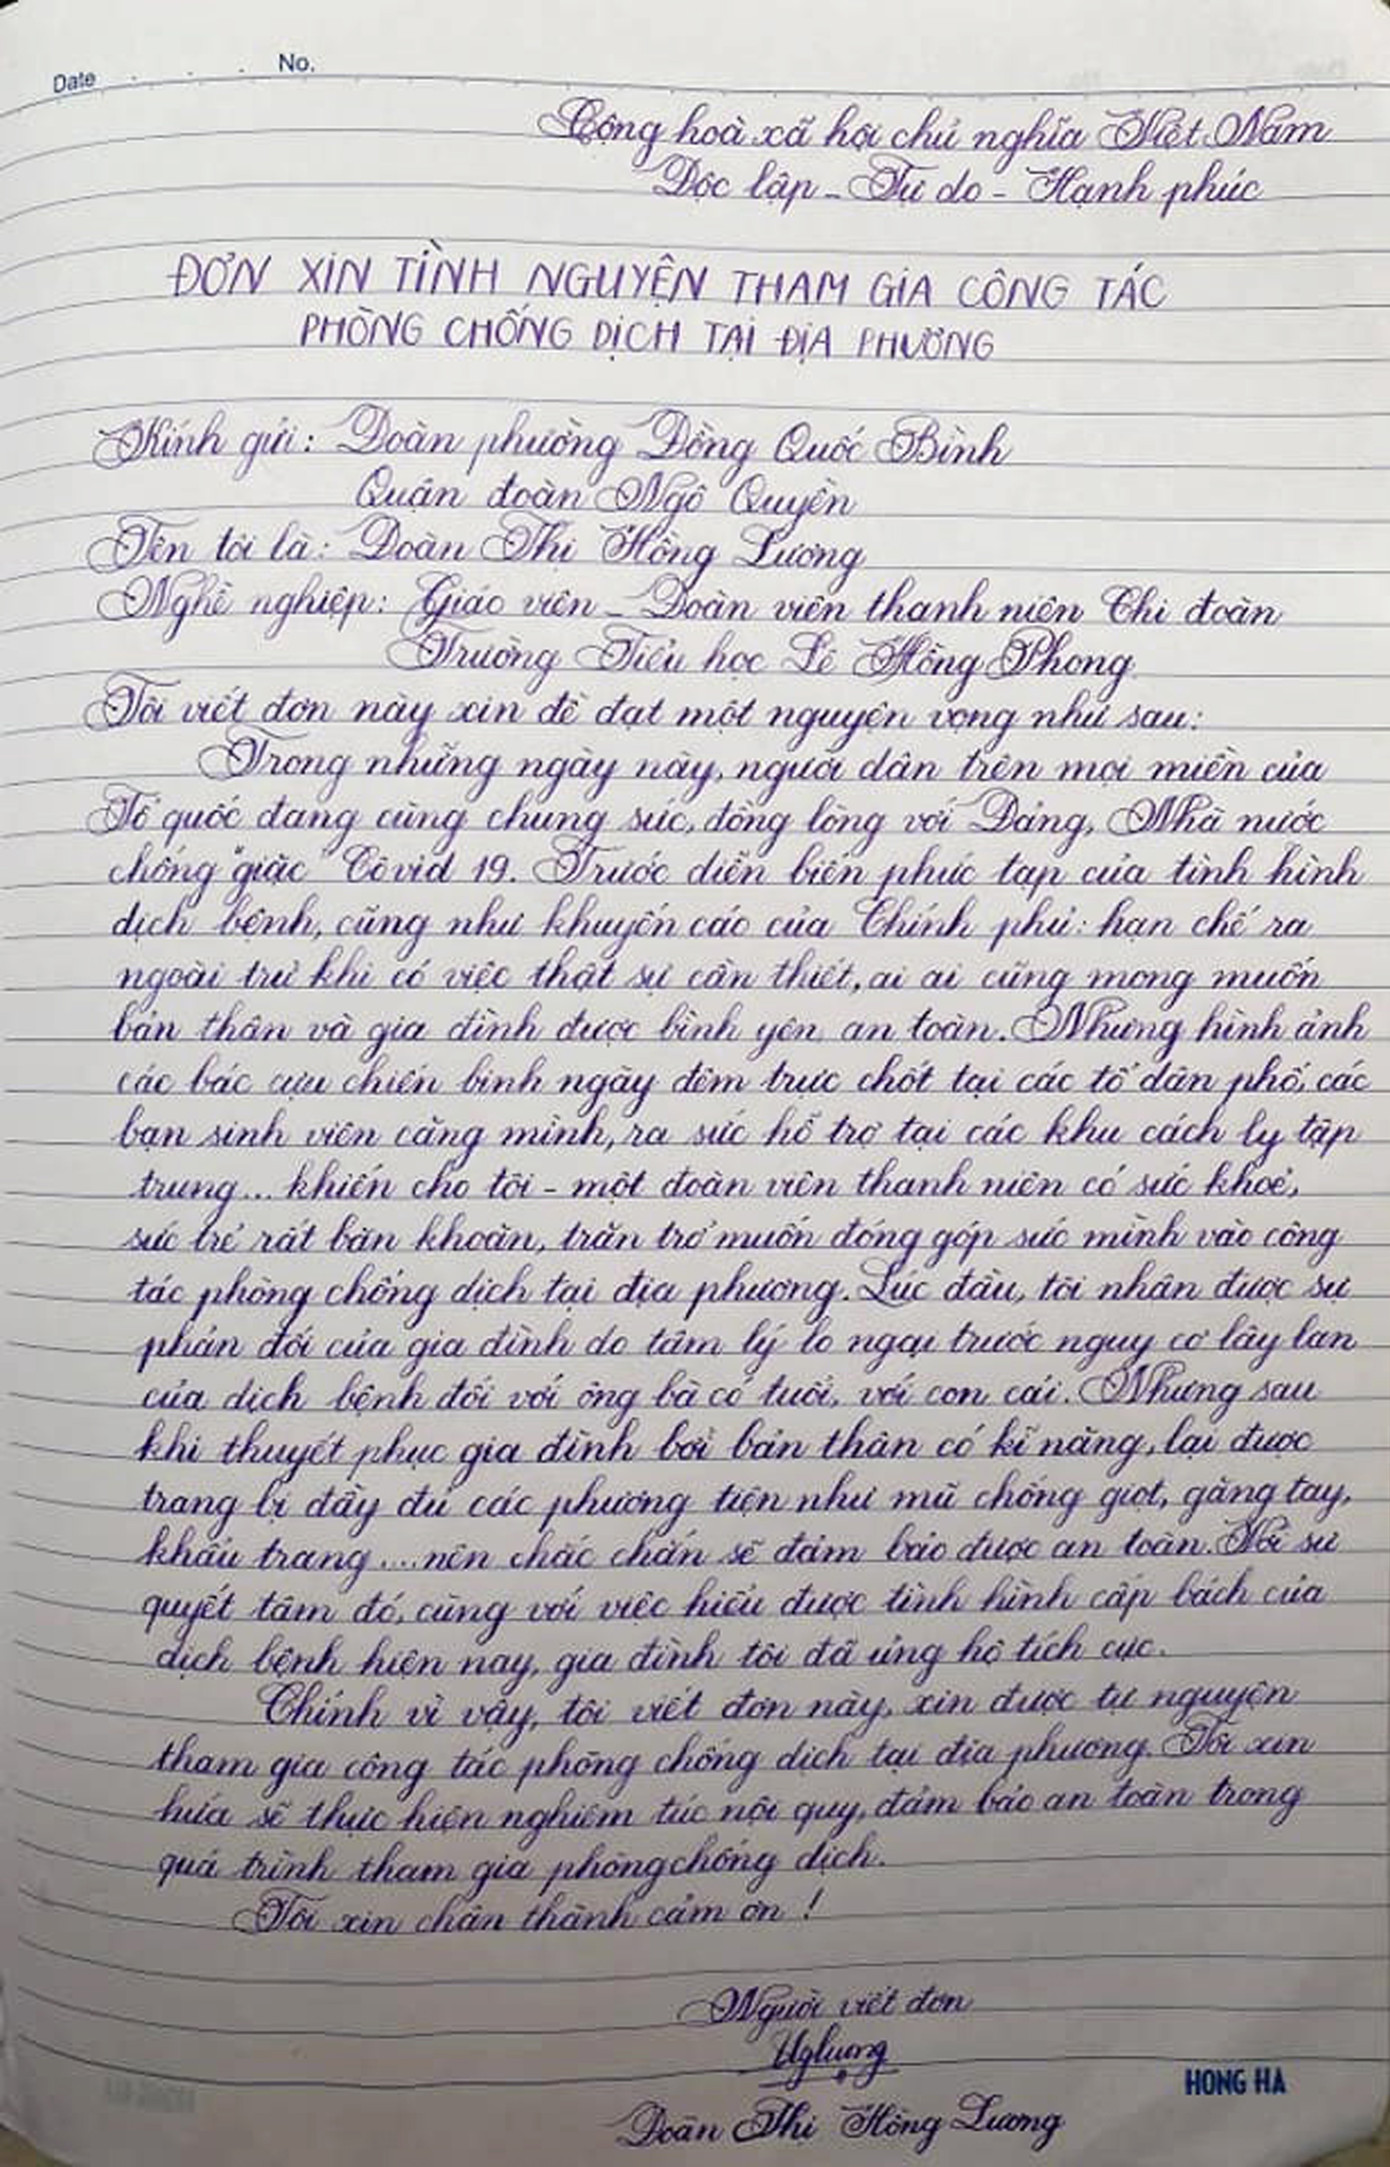 Date No.
Cộng hoà xã hội chủ nghĩa Việt Nam
Độc lập - Tự do - Hạnh phúc
ĐƠN XIN TÌNH NGUYỆN THAM GIA CÔNG TÁC
PHÒNG CHỐNG DỊCH TẠI ĐỊA PHƯƠNG
Kính gửi: Đoàn phường Đồng Quốc Bình
Quận đoàn Ngô Quyền
Tên tôi là: Đoàn Thị Hồng Lương
Nghề nghiệp: Giáo viên - Đoàn viên thanh niên Chi đoàn
Trường Tiểu học Lê Hồng Phong
Tôi viết đơn này xin đề đạt một nguyện vọng như sau:
Trong những ngày này, người dân trên mọi miền của
Tổ quốc đang cùng chung sức, đồng lòng với Đảng, Nhà nước
chống "giặc" Covid 19. Trước diễn biến phức tạp của tình hình
dịch bệnh, cũng như khuyến cáo của Chính phủ: hạn chế ra
ngoài trừ khi có việc thật sự cần thiết, ai ai cũng mong muốn
bản thân và gia đình được bình yên, an toàn. Nhưng hình ảnh
các bác cựu chiến binh ngày đêm trực chốt tại các tổ dân phố, các
bạn sinh viên căng mình, ra sức hỗ trợ tại các khu cách ly tập
trung... khiến cho tôi - một đoàn viên thanh niên có sức khoẻ,
sức trẻ rất băn khoăn, trăn trở muốn đóng góp sức mình vào công
tác phòng chống dịch tại địa phương. Lúc đầu, tôi nhận được sự
phản đối của gia đình do tâm lý lo ngại trước nguy cơ lây lan
của dịch bệnh đối với ông bà có tuổi, với con cái. Nhưng sau
khi thuyết phục gia đình bởi bản thân có kĩ năng, lại được
trang bị đầy đủ các phương tiện như mũ chống giọt, găng tay,
khẩu trang ... nên chắc chắn sẽ đảm bảo được an toàn. Với sự
quyết tâm đó, cùng với việc hiểu được tình hình cấp bách của
dịch bệnh hiện nay, gia đình tôi đã ủng hộ tích cực.
Chính vì vậy, tôi viết đơn này, xin được tự nguyện
tham gia công tác phòng chống dịch tại địa phương. Tôi xin
hứa sẽ thực hiện nghiêm túc nội quy, đảm bảo an toàn trong
quá trình tham gia phòng chống dịch.
Tôi xin chân thành cảm ơn !
Người viết đơn
Đoàn Thị Hồng Lương
HONG HA